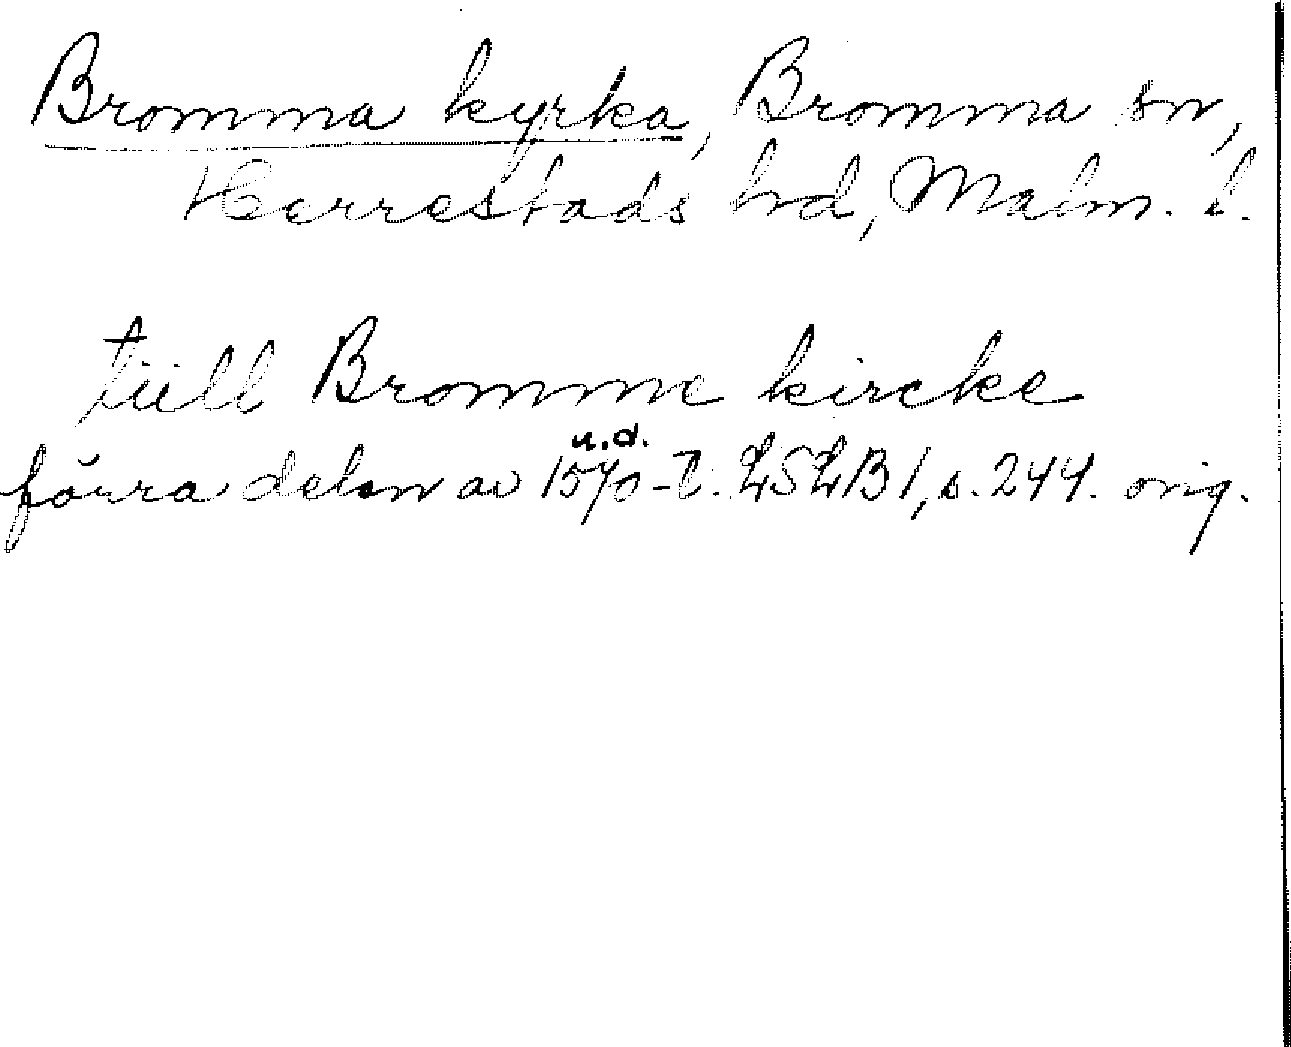 Bromma kyrka, Bromma sn,
Herrestads hd, Malm. l.
tiill Bromme kircke
u.d.
förra delen av 1570-t. LSLB1, s. 244. orig.